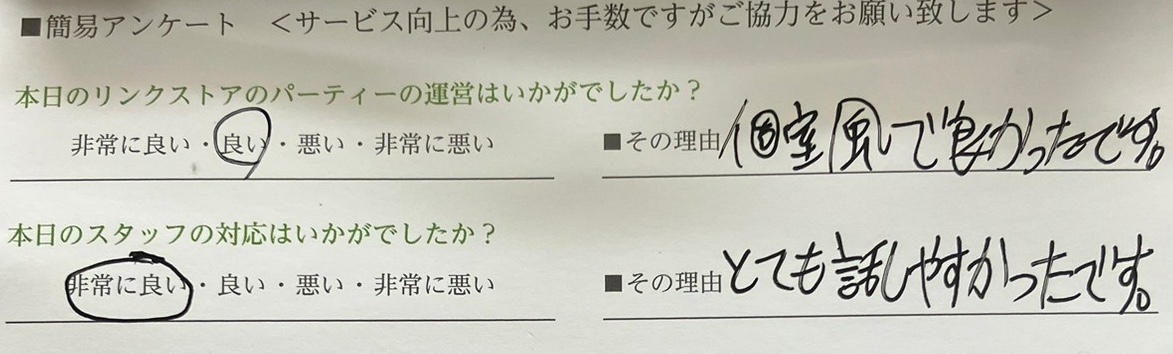 ■簡易アンケート ＜サービス向上の為、お手数ですがご協力をお願い致します＞
本日のリンクストアのパーティーの運営はいかがでしたか？
非常に良い・良い・悪い・非常に悪い ■その理由 個室風で良かったです。
本日のスタッフの対応はいかがでしたか？
非常に良い・良い・悪い・非常に悪い ■その理由 とても話しやすかったです。